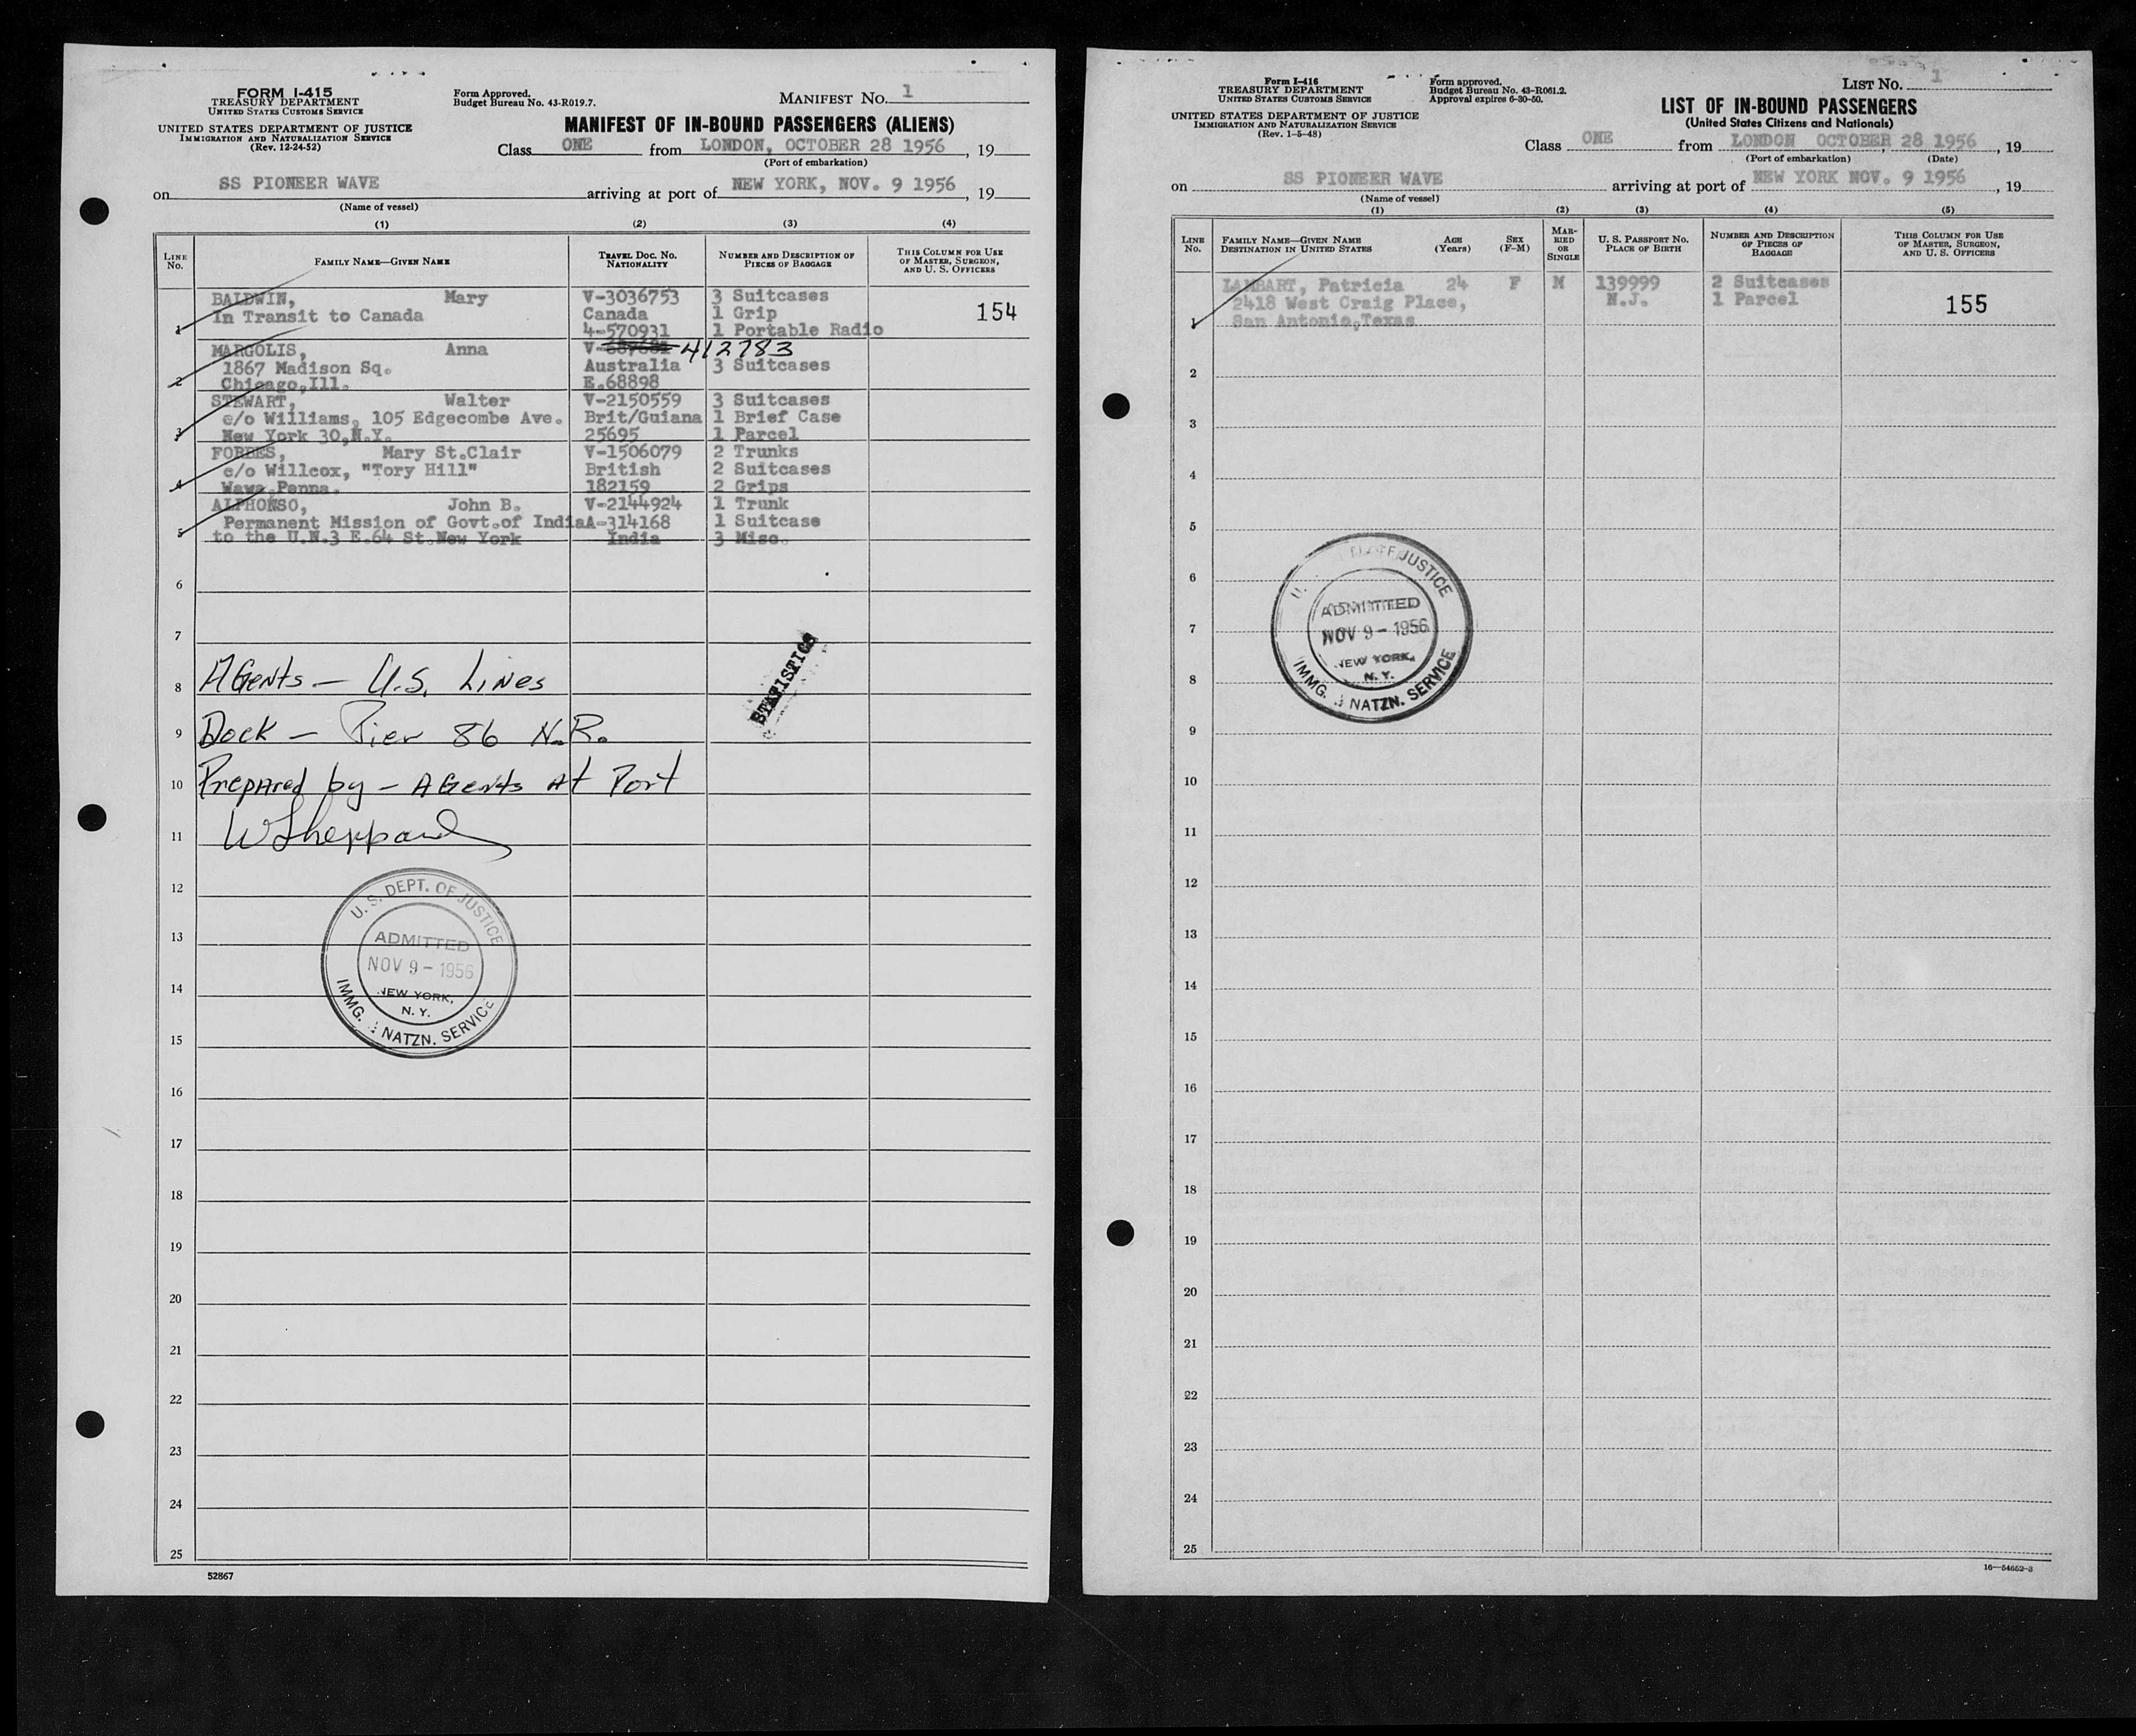 FORM I-415
TREASURY DEPARTMENT
UNITED STATES CUSTOMS SERVICE
UNITED STATES DEPARTMENT OF JUSTICE
IMMIGRATION AND NATURALIZATION SERVICE
(Rev. 12-24-52)
Form Approved.
Budget Bureau No. 43-R019.7.
MANIFEST NO. 1
MANIFEST OF IN-BOUND PASSENGERS (ALIENS)
Class ONE from LONDON, OCTOBER 28 1956, 19
(Port of embarkation)
on SS PIONEER WAVE arriving at port of NEW YORK, NOV. 9 1956, 19
(Name of vessel)
(1) (2) (3) (4)
LINE No. FAMILY NAME—GIVEN NAME TRAVEL DOC. NO. NATIONALITY NUMBER AND DESCRIPTION OF PIECES OF BAGGAGE THIS COLUMN FOR USE OF MASTER, SURGEON, AND U. S. OFFICERS
BALDWIN, Mary V-3036753 3 Suitcases
In Transit to Canada Canada 1 Grip 154
1 4-570931 1 Portable Radio
MARGOLIS, Anna V- 412783
1867 Madison Sq. Australia 3 Suitcases
2 Chicago,Ill. E.68898
STEWART, Walter V-2150559 3 Suitcases
c/o Williams, 105 Edgecombe Ave. Brit/Guiana 1 Brief Case
3 New York 30,N.Y. 25695 1 Parcel
FORBES, Mary St.Clair V-1506079 2 Trunks
c/o Willcox, "Tory Hill" British 2 Suitcases
4 Wawa,Penna. 182159 2 Grips
ALPHONSO, John B. V-2144924 1 Trunk
Permanent Mission of Govt.of India A-314168 1 Suitcase
5 to the U.N.3 E.64 St.New York India 3 Misc.
6
7
STATISTICS
8 Agents — U.S. Lines
9 Dock — Pier 86 N.R.
10 Prepared by — Agents At Port
11 W Sheppard
12
13
14
15
U. S. DEPT. OF JUSTICE
ADMITTED
NOV 9 - 1956
NEW YORK,
N. Y.
IMMG. & NATZN. SERVICE
16
17
18
19
20
21
22
23
24
25
52867
Form I-416
TREASURY DEPARTMENT
UNITED STATES CUSTOMS SERVICE
UNITED STATES DEPARTMENT OF JUSTICE
IMMIGRATION AND NATURALIZATION SERVICE
(Rev. 1-5-48)
Form approved.
Budget Bureau No. 43-R061.2.
Approval expires 6-30-50.
LIST NO. 1
LIST OF IN-BOUND PASSENGERS
(United States Citizens and Nationals)
Class ONE from LONDON OCTOBER 28 1956, 19
(Port of embarkation) (Date)
on SS PIONEER WAVE arriving at port of NEW YORK NOV. 9 1956, 19
(Name of vessel)
(1) (2) (3) (4) (5)
LINE No. FAMILY NAME—GIVEN NAME DESTINATION IN UNITED STATES AGE (Years) SEX (F-M) MARRIED OR SINGLE U. S. PASSPORT NO. PLACE OF BIRTH NUMBER AND DESCRIPTION OF PIECES OF BAGGAGE THIS COLUMN FOR USE OF MASTER, SURGEON, AND U. S. OFFICERS
LAMBART, Patricia 24 F M 139999 2 Suitcases
2418 West Craig Place, N.J. 1 Parcel 155
1 San Antonio,Texas
2
3
4
5
6
7
8
U. JUSTICE
ADMITTED
NOV 9 - 1956
NEW YORK,
N. Y.
IMMG. & NATZN. SERVICE
9
10
11
12
13
14
15
16
17
18
19
20
21
22
23
24
25
16—54652-3